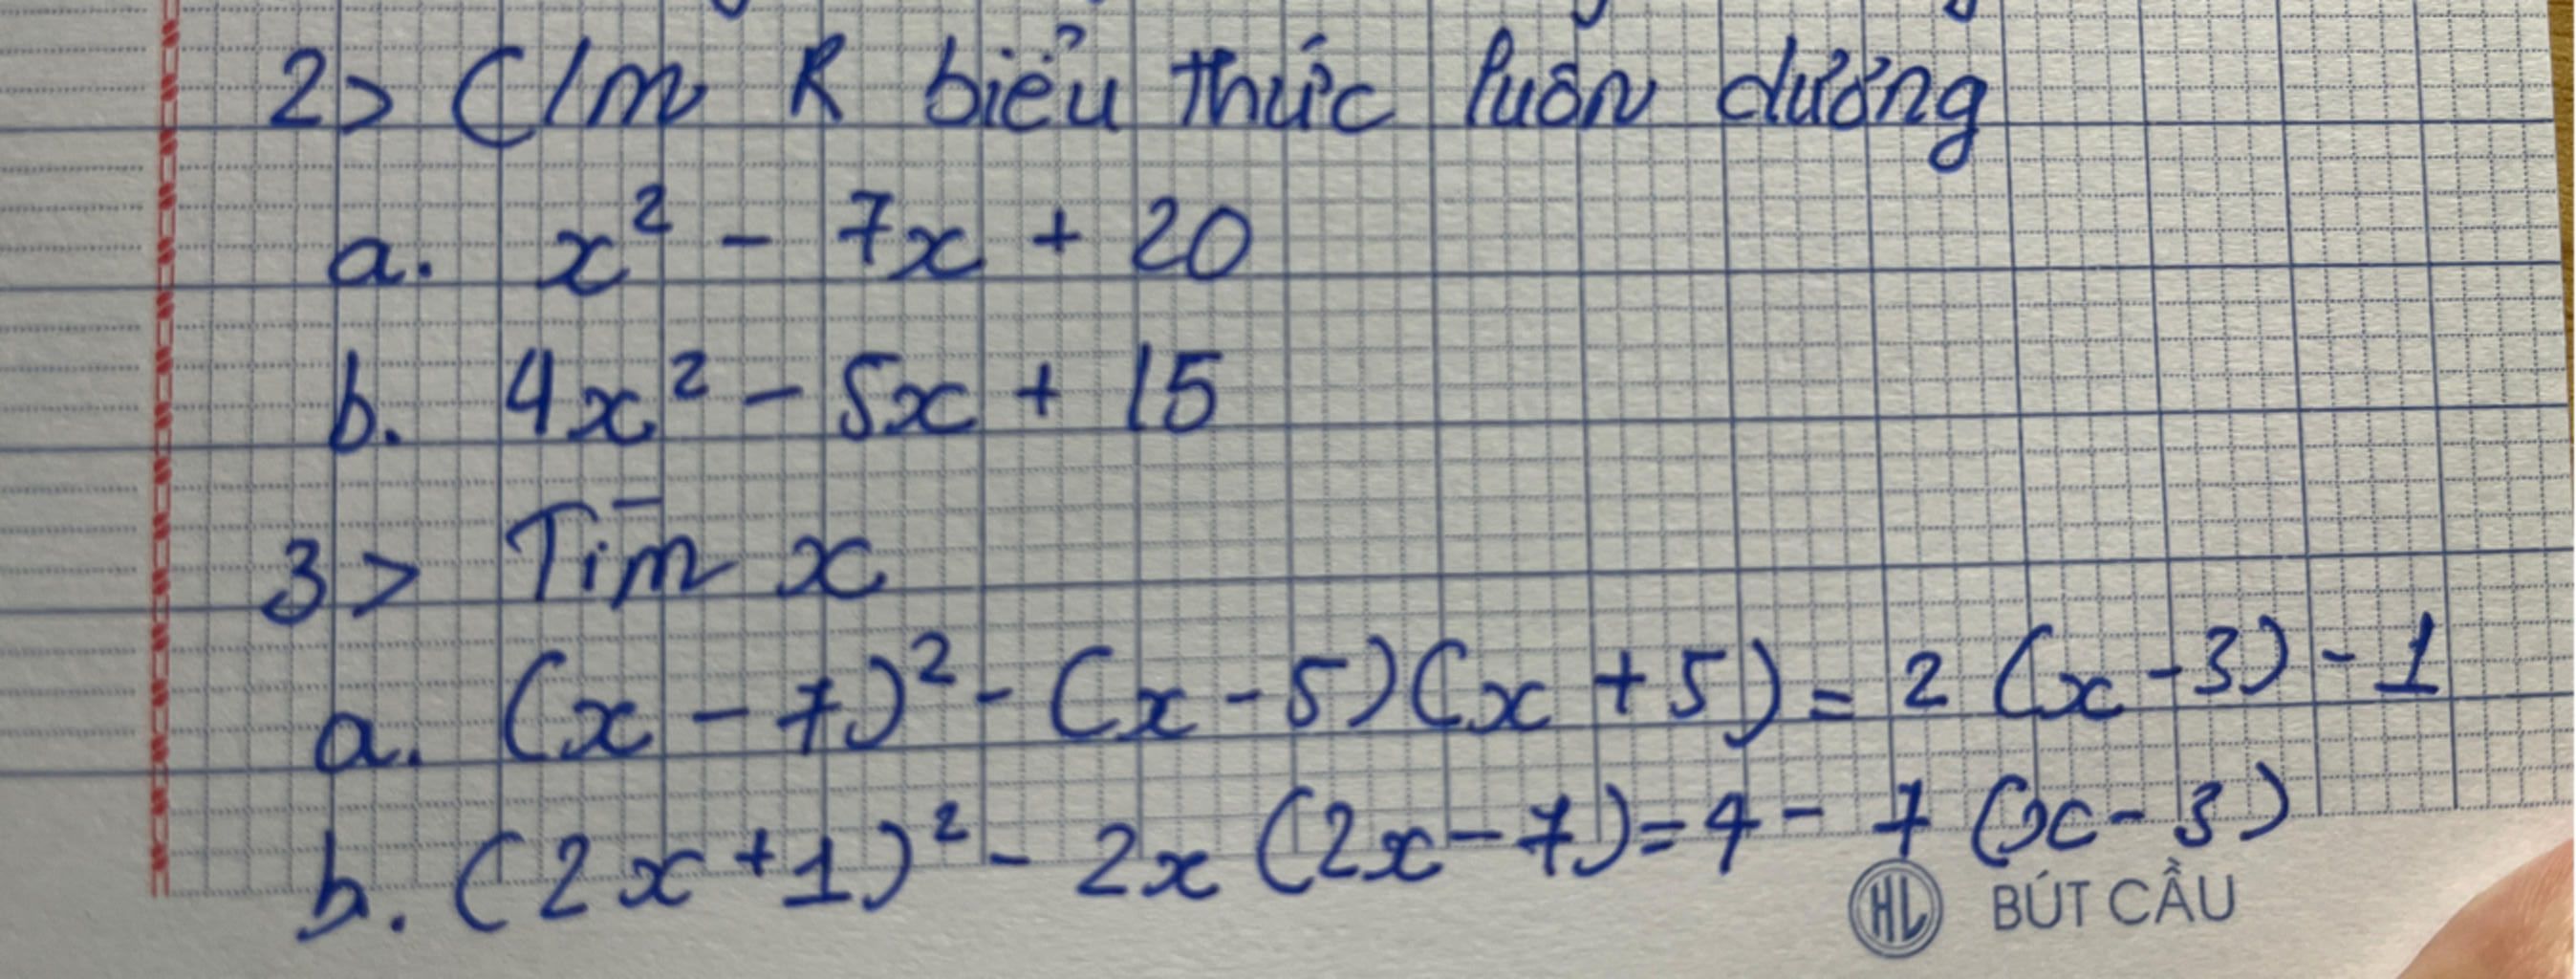 2> C/m R biểu thức luôn dương
a. x² - 7x + 20
b. 4x² - 5x + 15
3> Tìm x
a. (x - 7)² - (x - 5)(x + 5) = 2 (x - 3) - 1
b. (2x + 1)² - 2x (2x - 7) = 4 - 7 (x - 3)
HL BÚT CẦU